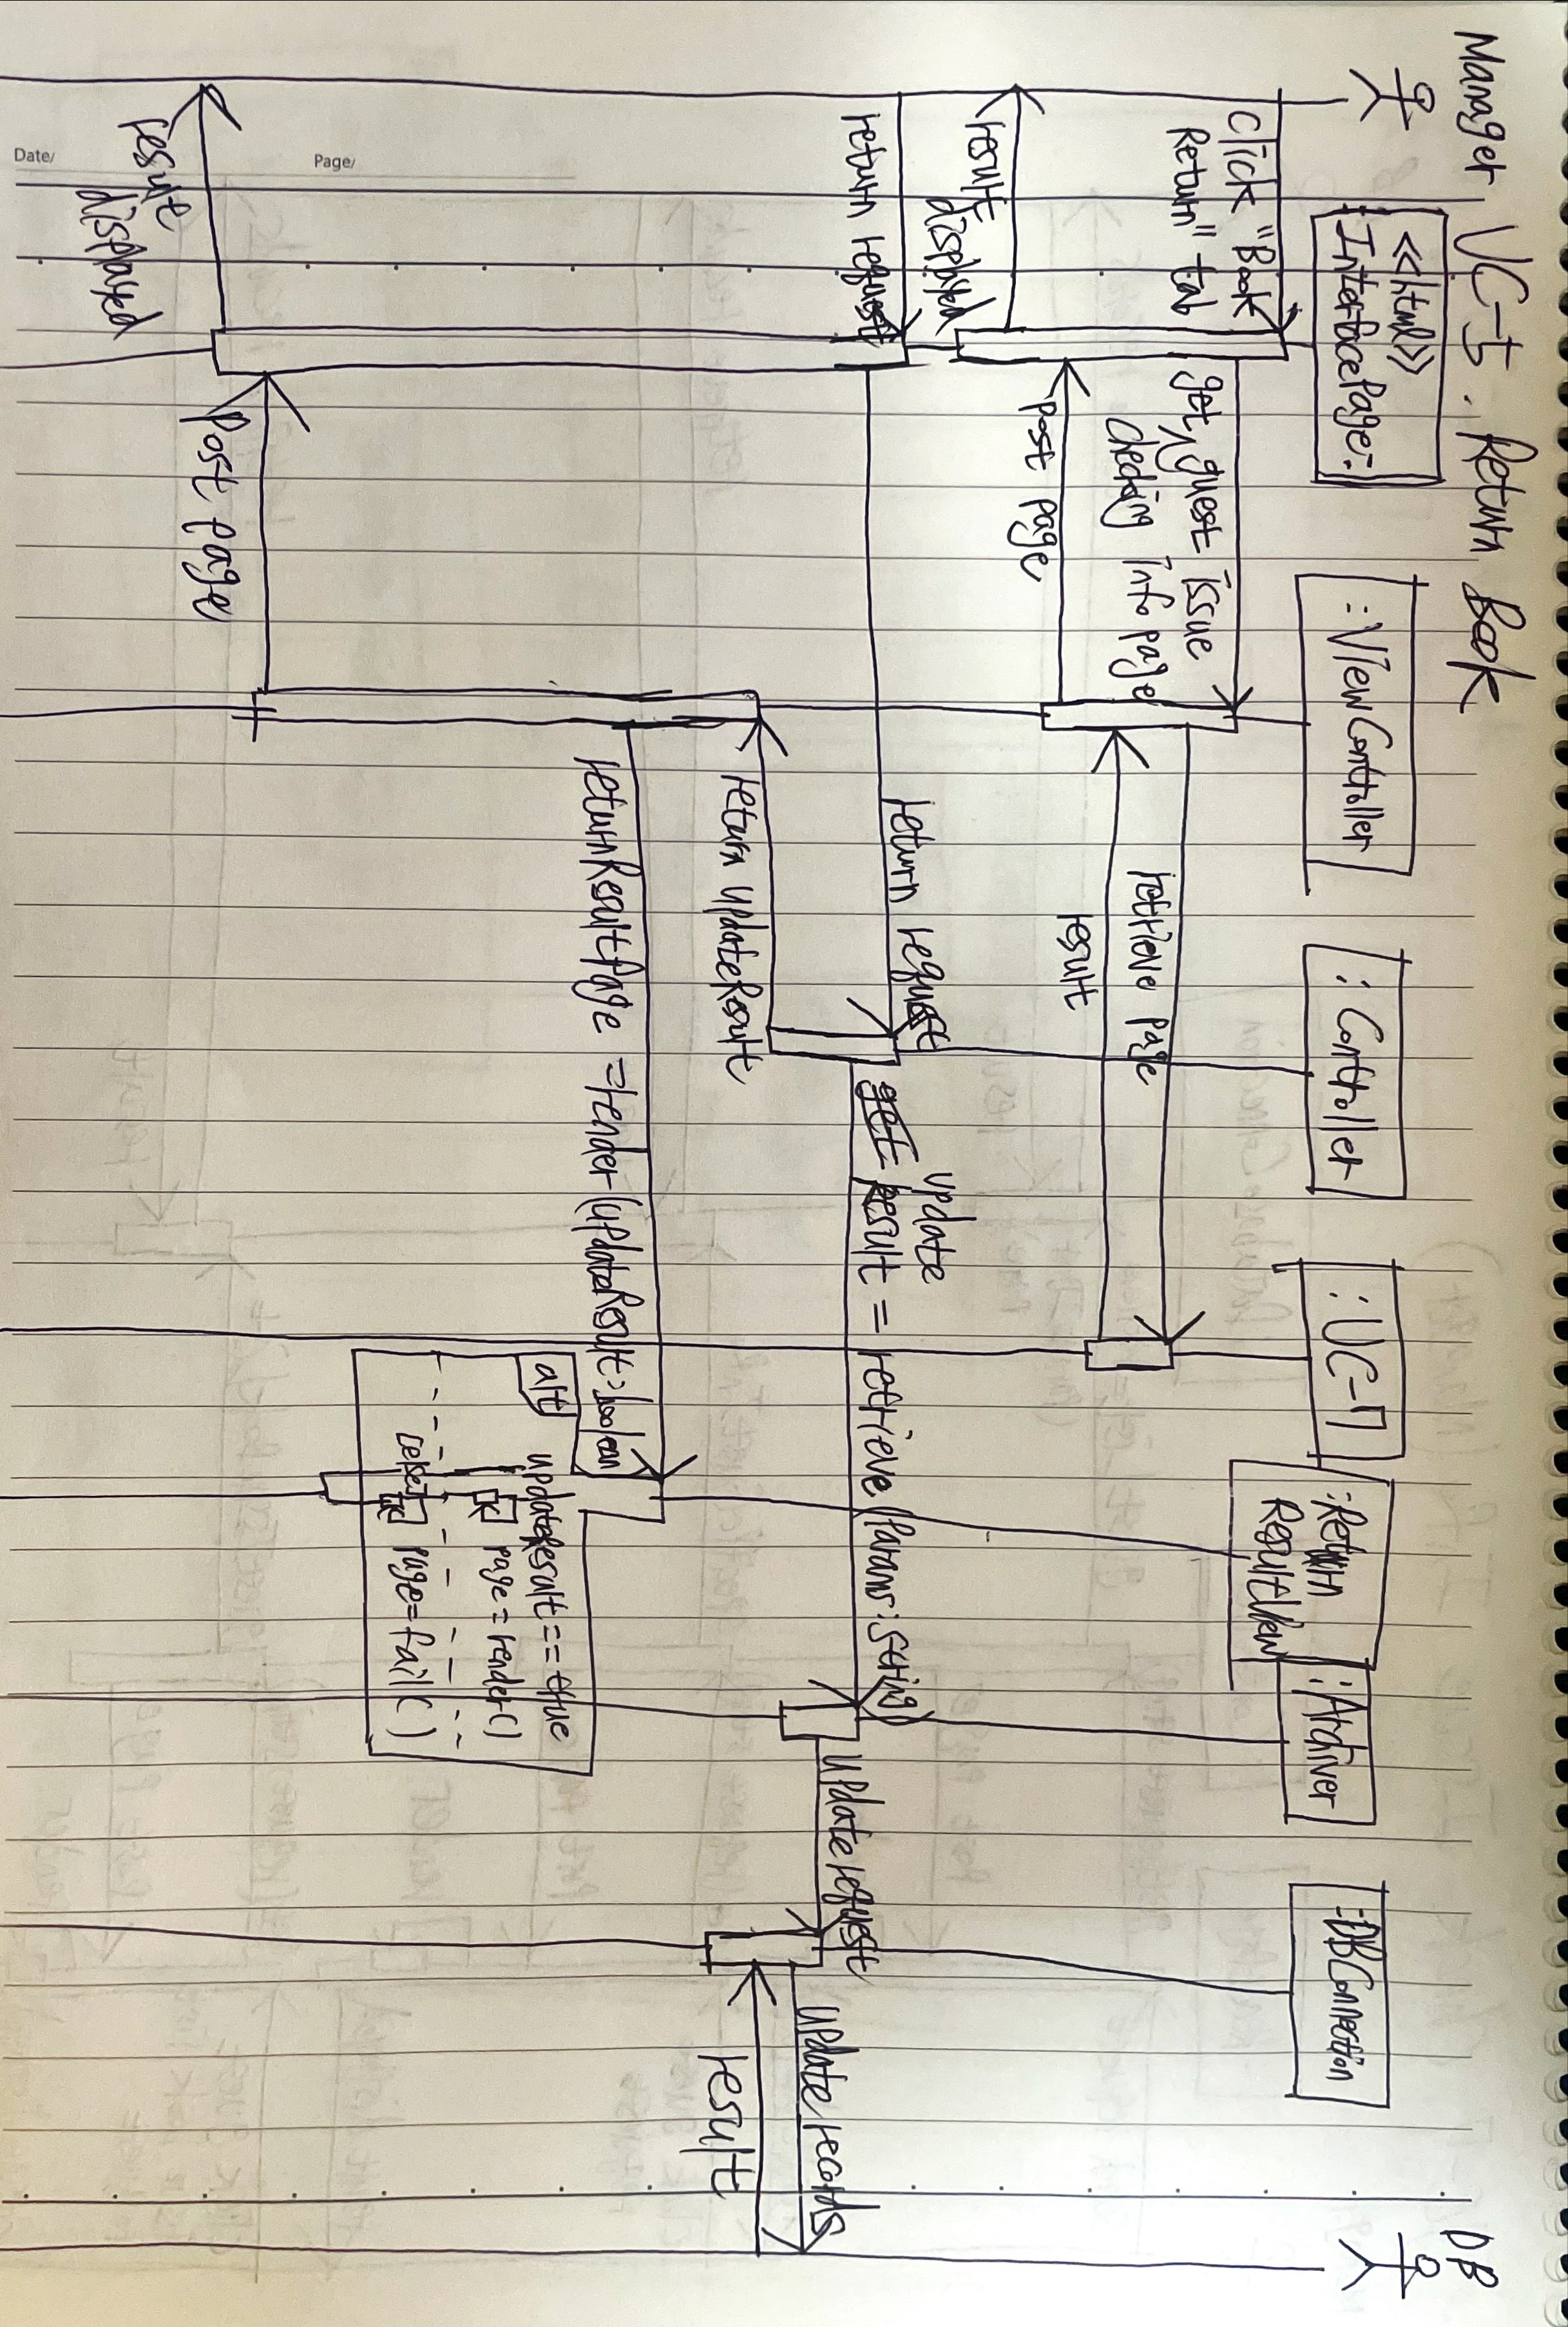 UC-5. Return Book
Manager
<<html>>
InterfacePage:
:ViewController
:Controller
:UC-7
:Return
ResultView
:Archiver
:DBConnection
DB
Click "Book
Return" tab
get guest issue
checking info page
retrieve page
result
post page
result
displayed
return request
return request
update
get result = retrieve(Params:String)
update request
update records
result
return updateResult
returnResultPage = render(updateResult:boolean)
alt
updateResult == true
page = render()
[else]
page = fail()
Post page
result
displayed
Date/
Page/